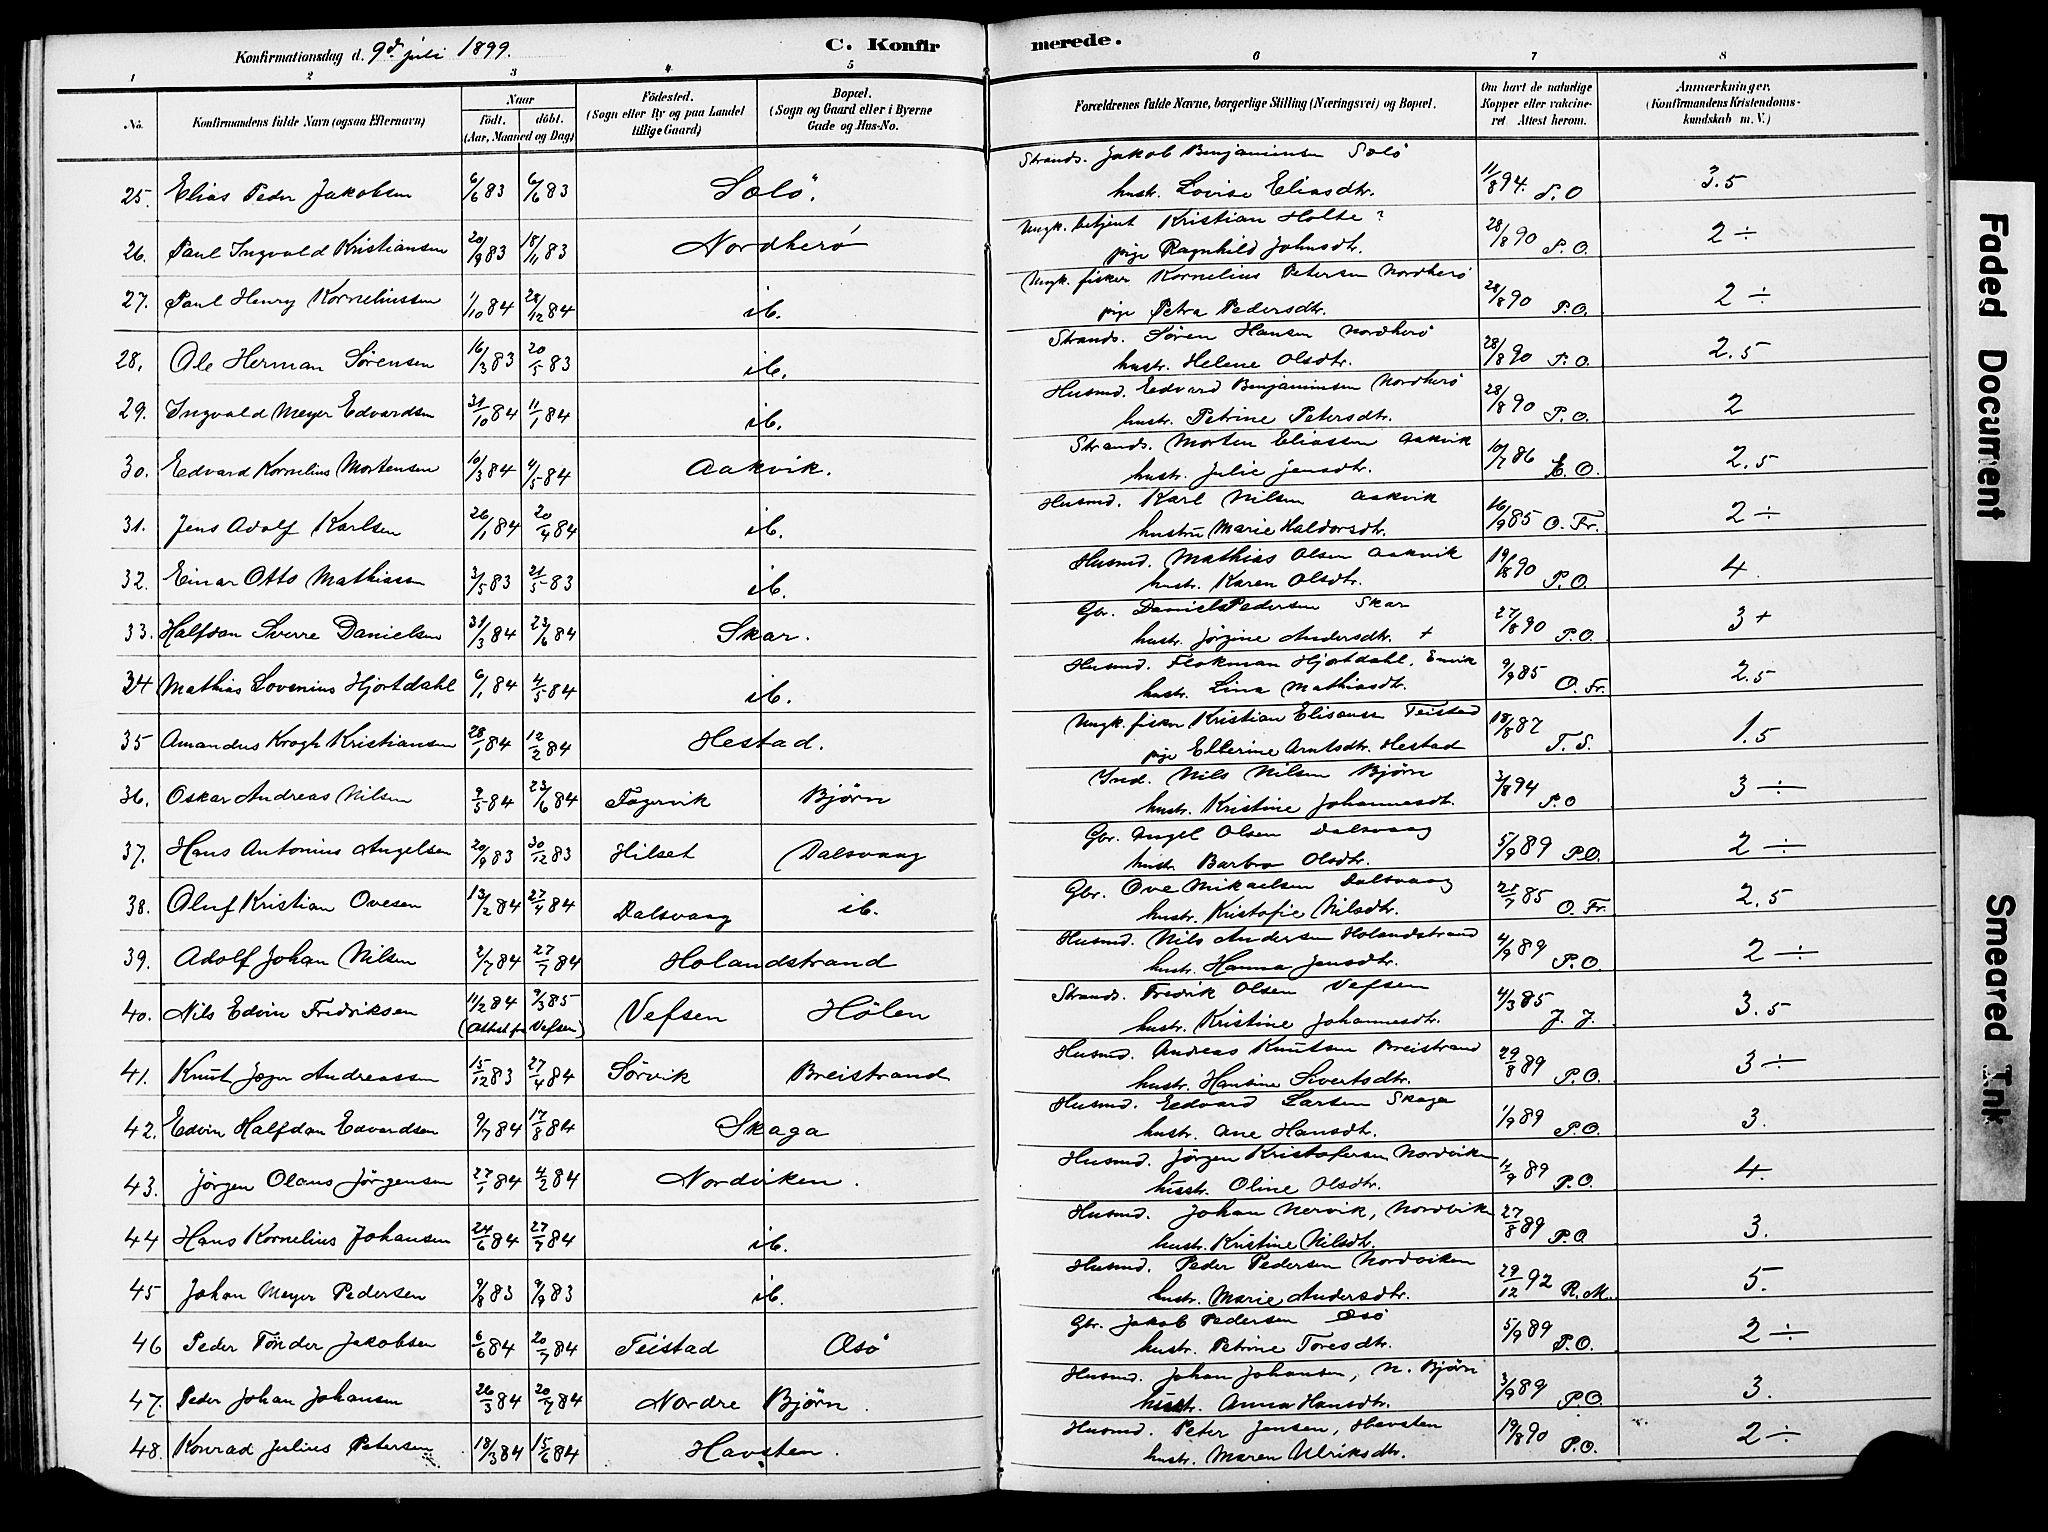 Konfirmationsdag d. 9de juli 1899. C. Konfirmerede.
1 2 3 4 5 6 7 8
No. Konfirmandens fulde Navn (ogsaa Efternavn) Naar født. døbt. (Aar, Maaned og Dag) Fødested. (Sogn eller By og paa Landet tillige Gaard) Bopæl. (Sogn og Gaard eller i Byerne Gade og Hus-No. Forældrenes fulde Navne, borgerlige Stilling (Næringsvei) og Bopæl. Om havt de naturlige Kopper eller vakcineret Attest herom. Anmærkninger. (Konfirmandens Kristendomskundskab m. V.)
25. Elias Peder Jakobsen 6/6 83 6/6 83 Sælø. Strands. Jakob Benjaminsen Sælø 11/8 94. P.O 3.5
hustr. Lovise Eliasdtr.
26. Paul Ingvald Kristiansen 20/9 83 18/11 83 Nordherø Ungk. betjent Kristian Holte? 28/8 90 P.O. 2 ÷
pige Ragnhild Johnsdtr.
27. Paul Henry Korneliussen 1/10 84 28/12 84 ib. Ungk. fisker Kornelius Petersen Nordherø 28/8 90 P.O. 2 ÷
pige Petra Pedersdtr.
28. Ole Herman Sørensen 16/3 83 20/5 83 ib. Strands. Søren Hansen Nordherø 28/8 90 P.O. 2.5
hustr. Helene Olsdtr.
29. Ingvald Meyer Edvardsen 31/10 84 11/1 84 ib. Husmd. Edvard Benjaminsen Nordherø 28/8 90 P.O. 2
hustr. Petrine Petersdtr.
30. Edvard Kornelius Mortensen 10/3 84 4/5 84 Aakvik. Strands. Morten Eliassen Aakvik 10/7 86 E.O. 2.5
hustr. Julie Jensdtr.
31. Jens Adolf Karlsen 26/1 84 20/4 84 ib. Husmd. Karl Nilsen Aakvik 16/9 85 O. Fr. 2 ÷
hustru Marie Haldorsdtr.
32. Einar Otto Mathiassen 3/5 83 21/5 83 ib. Husmd. Mathias Olsen Aakvik 19/8 90 P.O. 4.
hustr. Karen Olsdtr.
33. Halfdan Sverre Danielsen 31/3 84 23/6 84 Skar. Gbr. Daniel Pedersen Skar 27/8 90 P.O. 3+
hustr. Jørgine Andersdtr. +
34 Mathias Lovenius Hjortdahl 6/1 84 4/5 84 ib. Husmd. Flokman Hjortdahl. Envik 9/9 85 O. Fr. 2.5
hustr. Lina Mathiasdtr.
35 Amandus Krogh Kristiansen 28/1 84 12/2 84 Hestad. Ungk. fisker Kristian Elisæussen Teistad 18/8 87 T.S. 1.5
pige Ellerine Arntsdtr. Hestad
36. Oskar Andreas Nilsen 9/5 84 23/6 84 Fagervik Bjørn Ind. Nils Nilsen Bjørn 3/8 94 P.O 3 ÷
hustr. Kristine Johannesdtr.
37. Hans Antonius Angelsen 20/9 83 30/12 83 Hilset Dalsvaag Gbr. Angel Olsen Dalsvaag 5/9 89 P.O. 2 ÷
hustr. Barbro Olsdtr.
38. Oluf Kristian Ovesen 13/2 84 27/4 84 Dalsvaag ib. Gbr. Ove Mikaelsen Dalsvaag 25/7 85 O. Fr. 2.5
hustr. Kristofie Nilsdtr.
39. Adolf Johan Nilsen 2/7 84 27/7 84 Holandstrand Husmd. Nils Andersen Holandstrand 4/9 89 P.O. 2 ÷
hustr. Hanna Jensdtr.
40. Nils Edvin Fredriksen 11/2 84 9/3 85 (Attest fra Vefsen) Vefsen Hølen Strands. Fredrik Olsen Vefsen 4/3 85 J. J. 3.5
hustr. Kristine Johannesdtr.
41. Knut Jeger Andreassen 15/12 83 27/4 84 Sørvik Breistrand Husmd. Andreas Knutsen Breistrand 29/8 89 P.O. 3 ÷
hustr. Hansine Sivertsdtr.
42. Edvin Halfdan Edvardsen 9/7 84 17/8 84 Skaga Husmd. Edvard Larsen Skaga 1/9 89 P.O. 3.
hustr. Ane Hansdtr.
43. Jørgen Olaus Jørgensen 27/1 84 4/2 84 Nordviken. Husmd. Jørgen Kristofersen Nordviken 4/9 89 P.O. 4.
hustr. Oline Olsdtr.
44 Hans Kornelius Johansen 24/6 84 27/7 84 ib. Husmd. Johan Nervik, Nordviken 27/8 89 P.O. 3.
hustr. Kristine Nilsdtr.
45 Johan Meyer Pedersen 9/8 83 9/9 83 ib. Husmd. Peder Pedersen Nordviken 29/12 92 R.M. 5.
hustr. Marie Andersdtr.
46 Peder Tønder Jakobsen 6/6 84 20/7 84 Teistad Øsø Gbr. Jakob Pedersen Øsø 5/9 89 P.O. 2 ÷
hustr. Petrine Toresdtr.
47. Peder Johan Johansen 26/3 84 20/7 84 Nordre Bjørn. Husmd. Johan Johansen, N. Bjørn 3/9 89 P.O. 3.
hustr. Anna Hansdtr.
48. Konrad Julius Petersen 18/3 84 15/6 84 Havsten. Husmd. Peter Jensen, Havsten 19/8 90 P.O. 2 ÷
hustr. Maren Ulriksdtr.
Faded Document
Smeared Ink